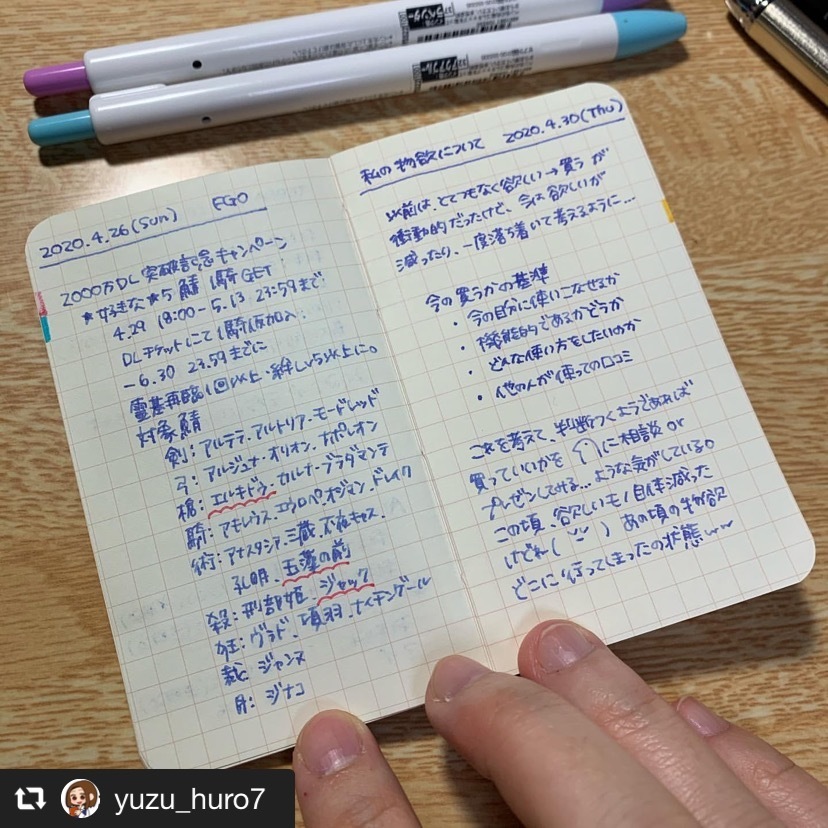 2020.4.26(Sun) FGO
2000万DL 突破記念キャンペーン
★好きな★5 鯖 1騎GET
4.29 18:00-5.13 23:59まで
DLチケットにて1騎仮加入
-6.30 23:59までに
霊基再臨1回以上・絆Lv5以上に。
対象鯖
剣: アルテラ・アルトリア・モードレッド
弓: アルジュナ・オリオン・ナポレオン
槍: エルキドゥ・カルナ・ブラダマンテ
騎: アキレウス・エウロペ・オジマン・ドレイク
術: アナスタシア・三蔵・不夜キャス・
孔明、玉藻の前
殺: 刑部姫・ジャック
狂: ヴラド、項羽、ナイチンゲール
裁: ジャンヌ
月: ジナコ
私の物欲について 2020.4.30(Thu)
以前は、とてつもなく欲しい→買う が
衝動的だったけど、今は欲しいが
減ったり、一度落ち着いて考えるように…
今の買うかの基準
・今の自分に使いこなせるか
・機能的であるかどうか
・どんな使い方をしたいのか
・他の人が使っての口コミ
これを考えて、判断つくようであれば
買っていいかを に相談 or
プレゼンしてる…ような気がしている。
この頃、欲しいモノ自体減った
けどね( ) あの頃の物欲
どこに行ってしまったの状態〜〜
yuzu_huro7